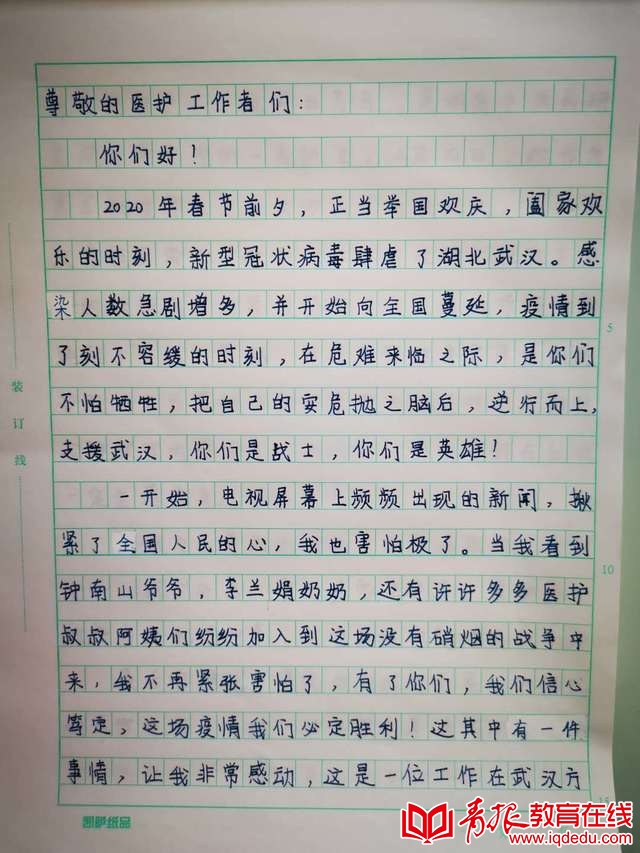 尊敬的医护工作者们：
你们好！
2020年春节前夕，正当举国欢庆，阖家欢
乐的时刻，新型冠状病毒肆虐了湖北武汉。感
染人数急剧增多，并开始向全国蔓延，疫情到
了刻不容缓的时刻，在危难来临之际，是你们
不怕牺牲，把自己的安危抛之脑后，逆行而上，
支援武汉，你们是战士，你们是英雄！
一开始，电视屏幕上频频出现的新闻，揪
紧了全国人民的心，我也害怕极了。当我看到
钟南山爷爷，李兰娟奶奶，还有许许多多医护
叔叔阿姨们纷纷加入到这场没有硝烟的战争中
来，我不再紧张害怕了，有了你们，我们信心
笃定，这场疫情我们必定胜利！这其中有一件
事情，让我非常感动，这是一位工作在武汉方
装订线
5
10
15
凯萨纸品
青报教育在线
www.iqdedu.com